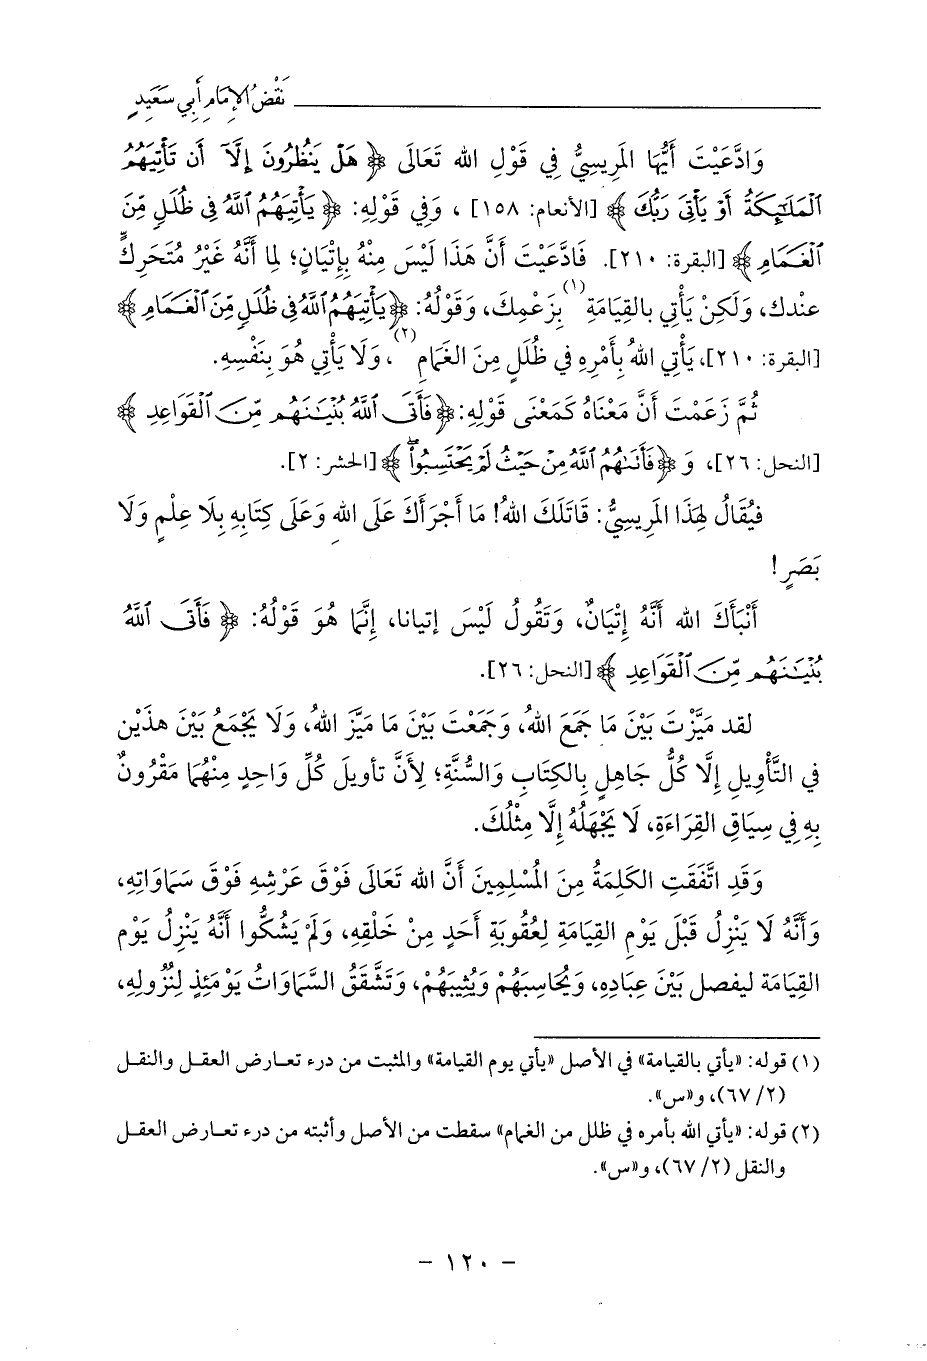 نَقْضُ الإِمَامِ أَبِي سَعِيدٍ
وَادَّعَيْتَ أَيُّهَا المَرِيسِيُّ فِي قَوْلِ الله تَعَالَى ﴿ هَلْ يَنظُرُونَ إِلَّآ أَن تَأْتِيَهُمُ
ٱلْمَلَٰٓئِكَةُ أَوْ يَأْتِىَ رَبُّكَ ﴾ [الأنعام: ١٥٨] ، وَفِي قَوْلِهِ: ﴿ يَأْتِيَهُمُ ٱللَّهُ فِى ظُلَلٍ مِّنَ
ٱلْغَمَامِ ﴾ [البقرة: ٢١٠]. فَادَّعَيْتَ أَنَّ هَذَا لَيْسَ مِنْهُ بِإِتْيَانٍ؛ لِمَا أَنَّهُ غَيْرُ مُتَحَرِكٍّ
عندك، وَلَكِنْ يَأْتِي بالقِيَامَةِ (١) بِزَعْمِكَ، وَقَوْلُهُ: ﴿ يَأْتِيَهُمُ ٱللَّهُ فِى ظُلَلٍ مِّنَ ٱلْغَمَامِ ﴾
[البقرة: ٢١٠]، يَأْتِي اللهُ بِأَمْرِهِ فِي ظُلَلٍ مِنَ الغَمَامِ (٢)، وَلَا يَأْتِي هُوَ بِنَفْسِهِ.
ثُمَّ زَعَمْتَ أَنَّ مَعْنَاهُ كَمَعْنَى قَوْلِهِ: ﴿ فَأَتَى ٱللَّهُ بُنْيَٰنَهُم مِّنَ ٱلْقَوَاعِدِ ﴾
[النحل: ٢٦]، وَ ﴿ فَأَتَىٰهُمُ ٱللَّهُ مِنْ حَيْثُ لَمْ يَحْتَسِبُوا۟ ۖ ﴾ [الحشر: ٢].
فيُقَالُ لِهَذَا المَرِيسِيُّ: قَاتَلَكَ اللهُ! مَا أَجْرَأَكَ عَلَى اللهِ وَعَلَى كِتَابِهِ بِلَا عِلْمٍ وَلَا
بَصَرٍ!
أَنْبَأَكَ الله أَنَّهُ إِتْيَانٌ، وَتَقُولُ لَيْسَ إتيانا، إِنَّمَا هُوَ قَوْلُهُ: ﴿ فَأَتَى ٱللَّهُ
بُنْيَٰنَهُم مِّنَ ٱلْقَوَاعِدِ ﴾ [النحل: ٢٦].
لقد مَيَّزْتَ بَيْنَ مَا جَمَعَ اللهُ، وَجَمَعْتَ بَيْنَ مَا مَيَّزَ اللهُ، وَلَا يَجْمَعُ بَيْنَ هذَيْن
في التَّأْوِيلِ إِلَّا كُلُّ جَاهِلٍ بِالكِتَابِ وَالسُّنَّةِ؛ لِأَنَّ تأويلَ كُلِّ وَاحِدٍ مِنْهُمَا مَقْرُونٌ
بِهِ فِي سِيَاقِ القِرَاءَةِ، لَا يَجْهَلُهُ إِلَّا مِثْلُكَ.
وَقَدِ اتَّفَقَتِ الكَلِمَةُ مِنَ المُسْلِمِينَ أَنَّ الله تَعَالَى فَوْقَ عَرْشِهِ فَوْقَ سَمَاوَاتِهِ،
وَأَنَّهُ لَا يَنْزِلُ قَبْلَ يَوْمِ القِيَامَةِ لِعُقُوبَةِ أَحَدٍ مِنْ خَلْقِهِ، وَلَمْ يَشُكُّوا أَنَّهُ يَنْزِلُ يَوْم
القِيَامَة ليفصل بَيْنَ عِبَادِهِ، وَيُحَاسِبَهُمْ وَيُثِيبَهُمْ، وَتَشَّقَقُ السَّمَاوَاتُ يَوْمَئِذٍ لِنُزُولِهِ،
(١) قوله: «يأتي بالقيامة» في الأصل «يأتي يوم القيامة» والمثبت من درء تعارض العقل والنقل
(٢/ ٦٧)، و«س».
(٢) قوله: «يأتي الله بأمره في ظلل من الغمام» سقطت من الأصل وأثبته من درء تعارض العقل
والنقل (٢/ ٦٧)، و«س».
- ١٢٠ -